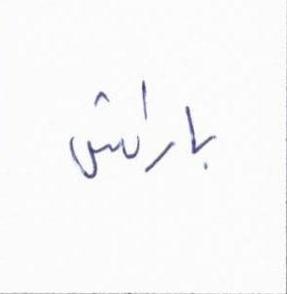 بارکش